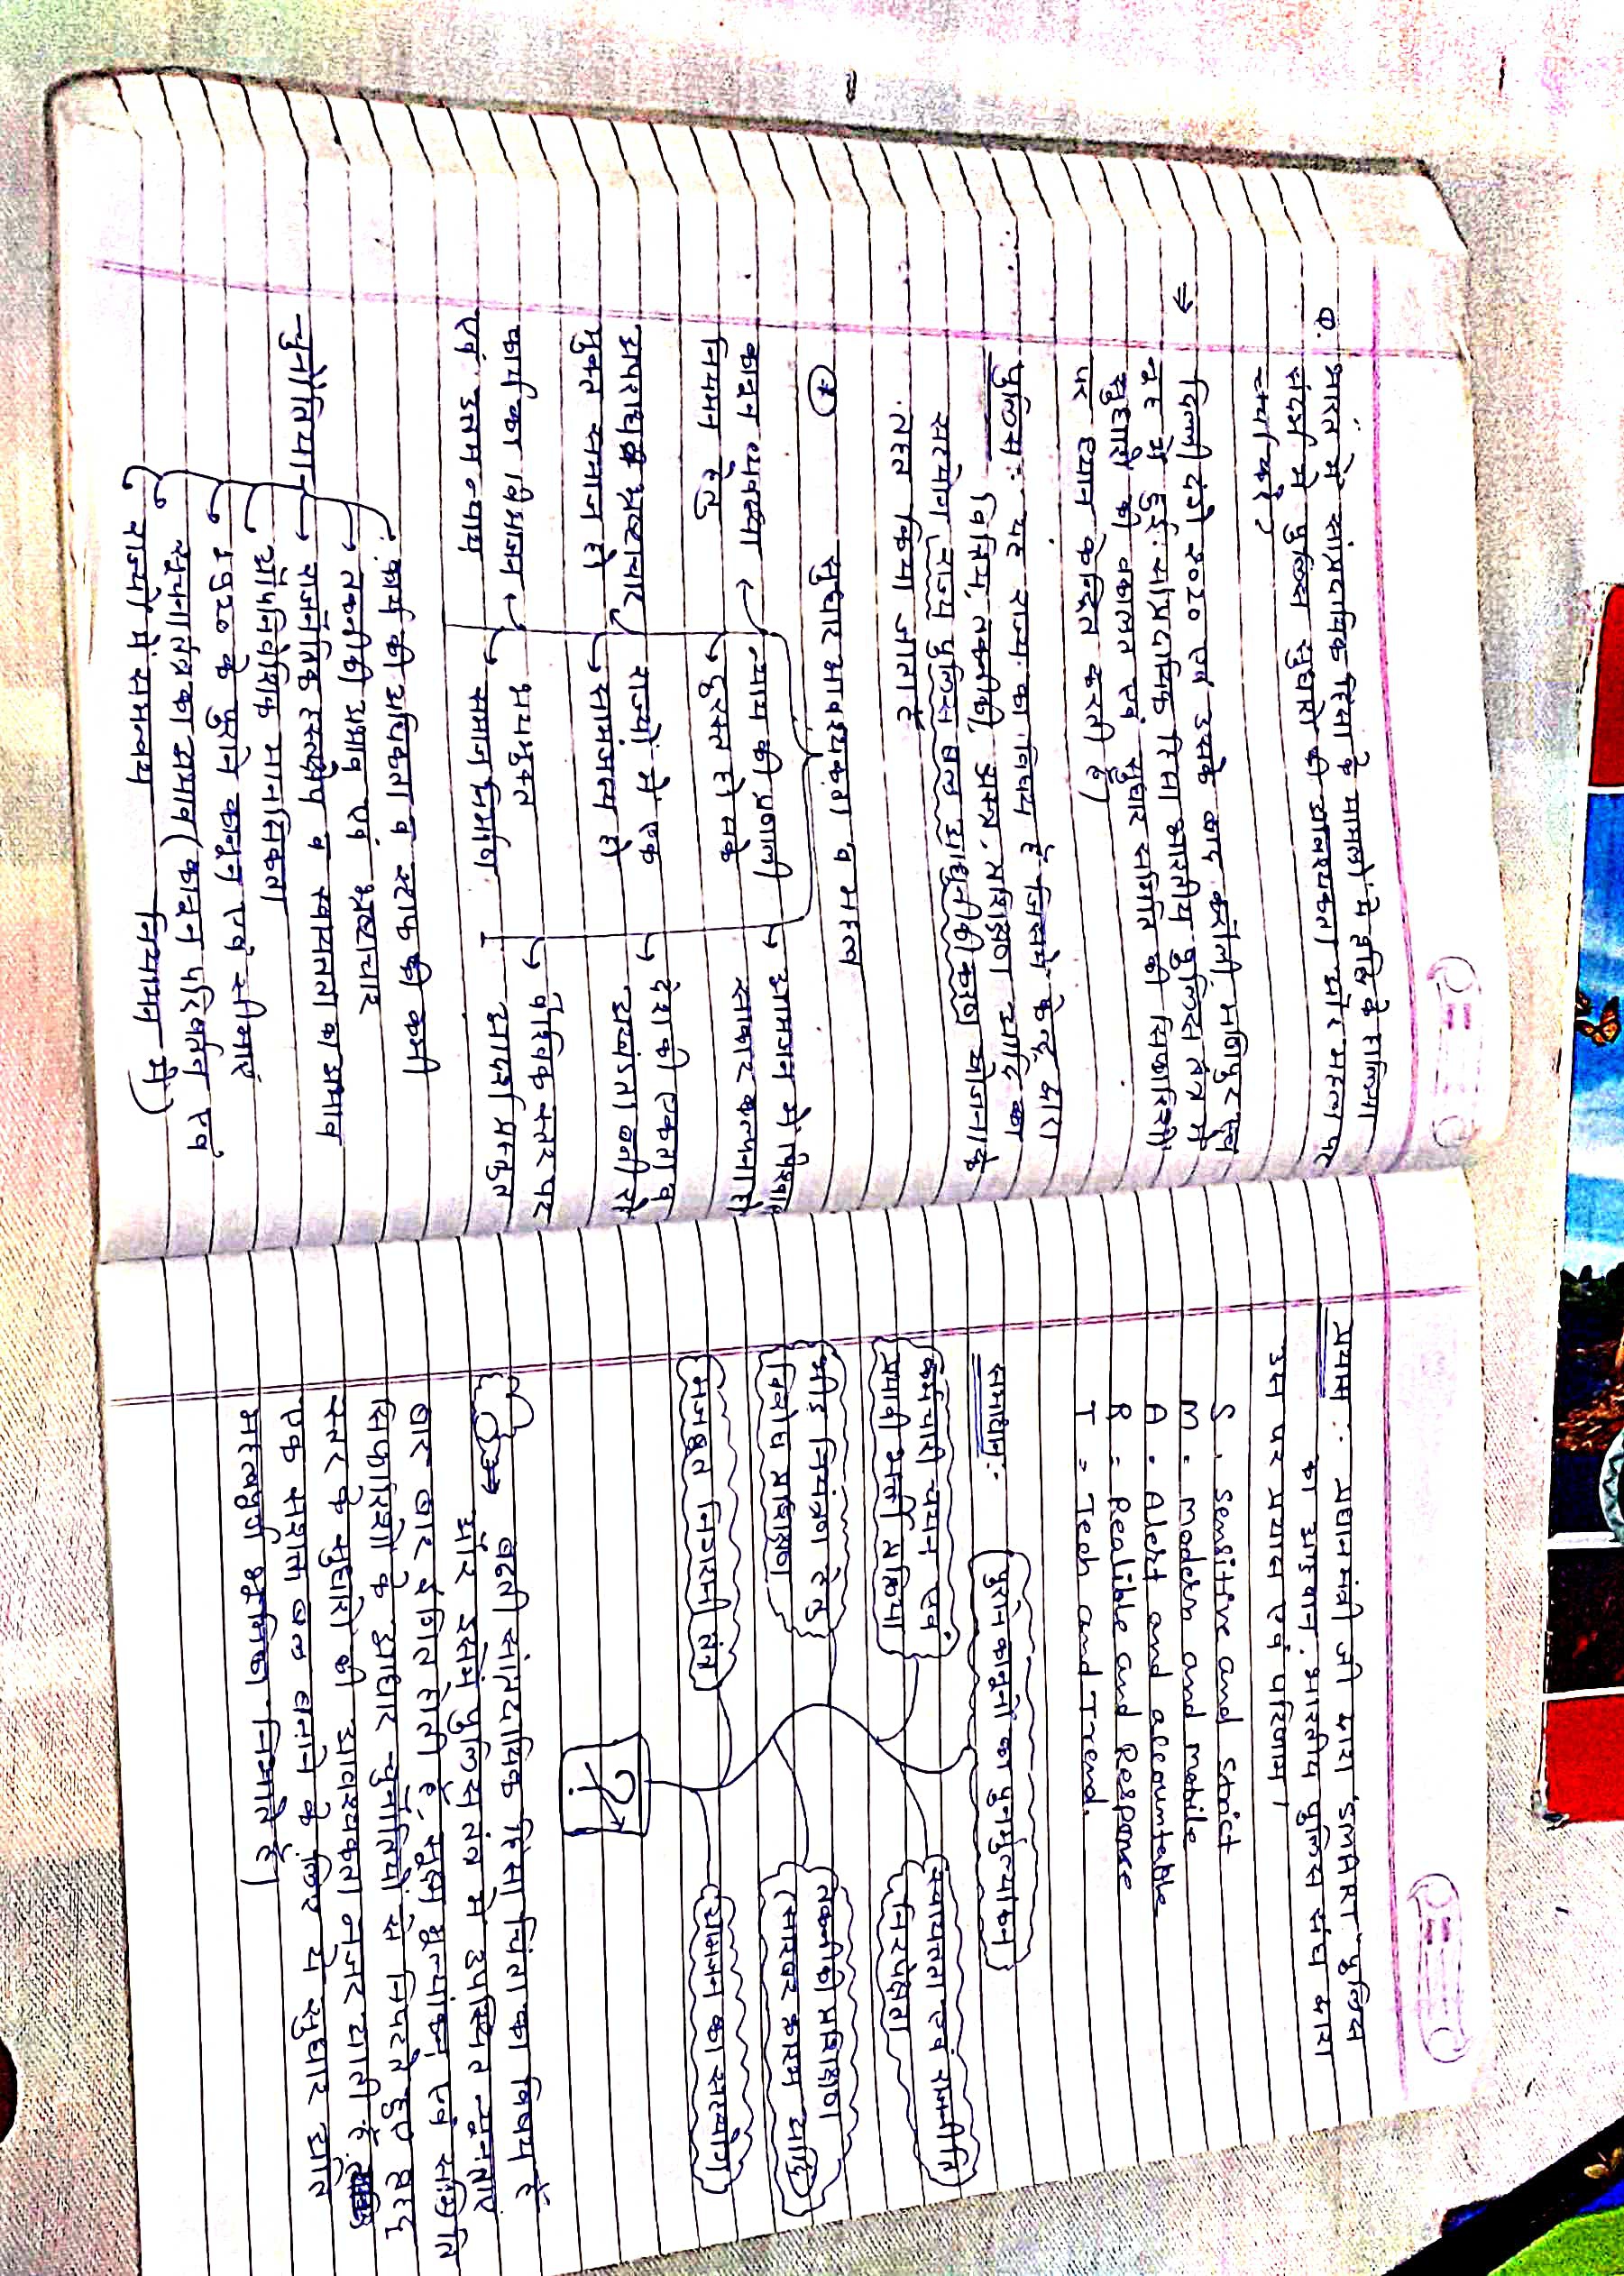 Q. भारत में सांप्रदायिक हिंसा के मामलों में वृद्धि के हालिया
संदर्भ में पुलिस सुधारों की आवश्यकता और महत्व पर
चर्चा करें?
⇒ दिल्ली दंगे 2020 एवं उसके बाद करौली, मणिपुर एवं
में हुई सांप्रदायिक हिंसा भारतीय पुलिस तंत्र में
सुधारों की वकालत एवं सुधार समिति की सिफारिशों
पर ध्यान केन्द्रित करती है)
पुलिस:- यह राज्य का विषय है जिसमे केन्द्र द्वारा
वित्तिय, तकनीकी, शस्त्र, प्रशिक्षण आदि का
सहयोग राज्य पुलिस बल आधुनीकीकरण योजना के
तहत किया जाता है
* सुधार आवश्यकता व महत्व
कानून व्यवस्था
नियमन हेतु
न्याय की प्रणाली
दुरस्त हो सके
आमजन में विश्वास
साकार कल्पना हो
अपराध व भ्रष्टाचार
मुक्त समाज हो
राज्यों में एक
सामंजस्य हो
देश की एकता व
अखंडता बनी रहे
कार्य का विभाजन
एवं उत्तम न्याय
भयमुक्त
समाज निर्माण
वैश्विक स्तर पर
आदर्श प्रस्तुत
चुनौतियां
कार्य की अधिकता व स्टाफ की कमी
तकनीकी अभाव एवं भ्रष्टाचार
राजनैतिक हस्तक्षेप व स्वायतता का अभाव
औपनिवेशिक मानसिकता
पुराने कानून एवं सीमाएं
सूचनातंत्र का अभाव (कानून परिवर्तन एवं
राज्यों में समन्वय नियमन में)
प्रयास:- प्रधानमंत्री जी द्वारा "SMART" पुलिस
का आहवान, भारतीय पुलिस संघ द्वारा
उस पर प्रयास एवं परिणाम।
S : Sensitive and Strict
M : Modern and mobile
A : Alert and accountable
R : Realible and Response
T : Tech and Trend.
समाधान:-
पुराने कानूनों का पुनर्मुल्यांकन
कर्मचारी चयन एवं
प्रभावी भर्ती प्रक्रिया
स्वायतता एवं राजनीति
निरपेक्षता
भीड़ नियंत्रण हेतु
विशेष प्रशिक्षण
तकनीकी प्रशिक्षण
(साइबर क्राइम आदि)
मजबूत निगरानी तंत्र
आमजन का सहयोग
?
बढ़ती सांप्रदायिक हिंसा चिंता का विषय है
और इसमें पुलिस तंत्र में उपस्थित न्यूनताएं
बार बार इंगित होती है, सूक्ष्म मूल्यांकन एवं समिति
सिफारिशों के आधार चुनौतियों से निपटते हुए वृहद
स्तर के सुधारों की आवश्यकता नजर आती है,
एक सशक्त बल बनाने के लिए ये सुधार अति
महत्वपूर्ण भूमिका निभाते है।